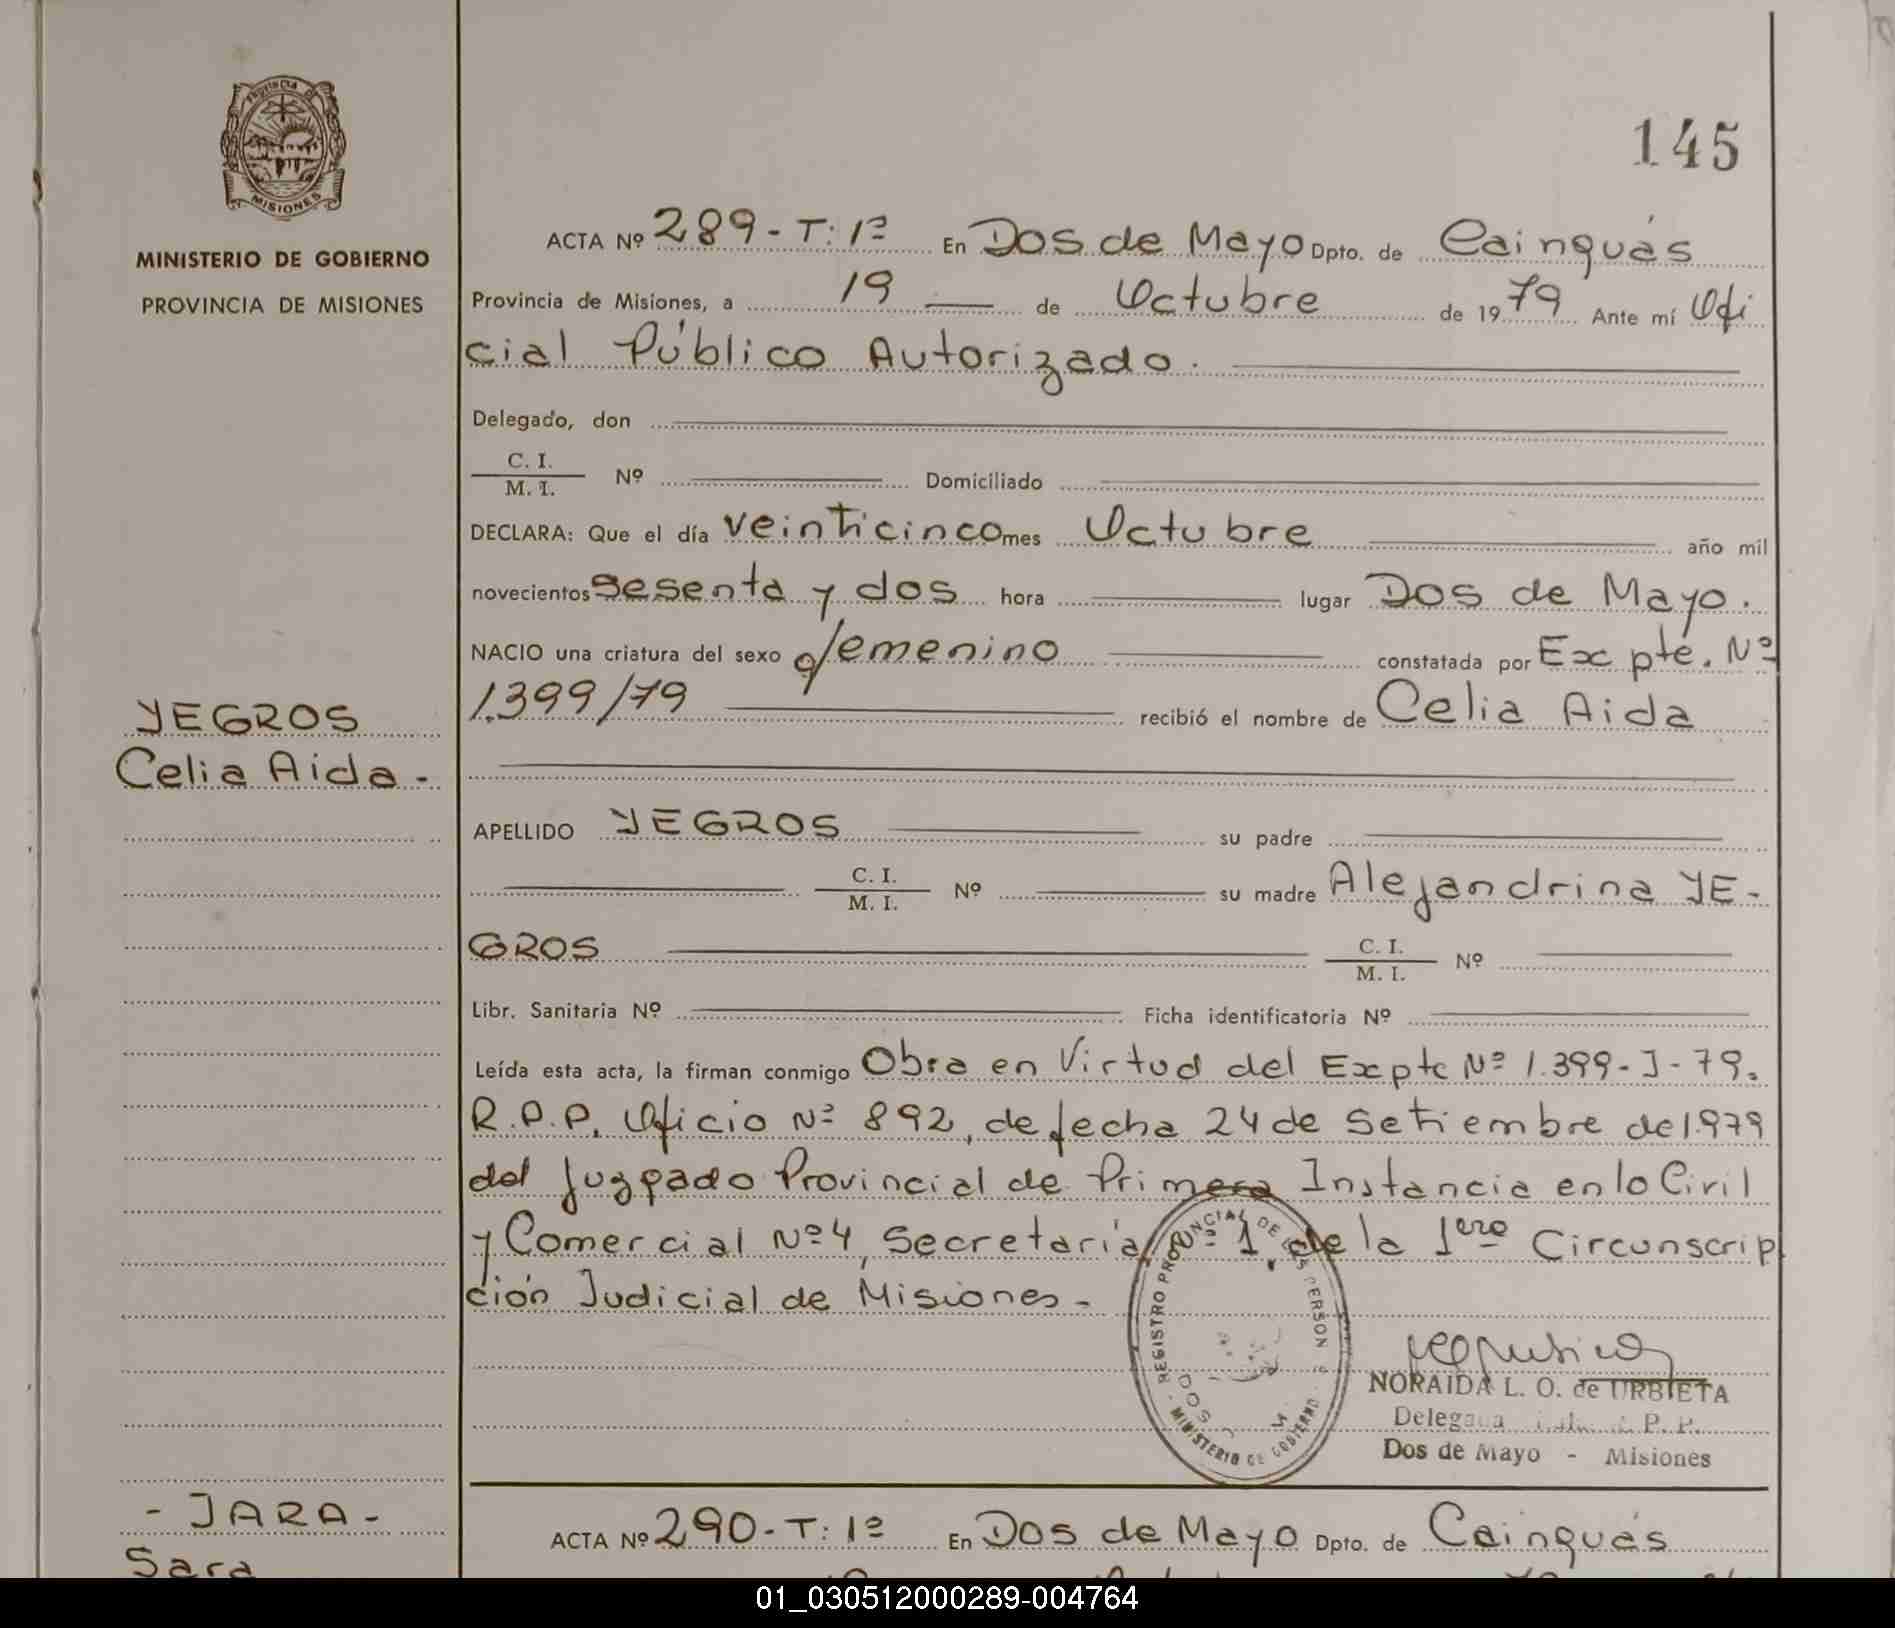 PROVINCIA DE
MISIONES
MINISTERIO DE GOBIERNO
PROVINCIA DE MISIONES
145
ACTA Nº 289-T: 1ª En Dos de Mayo Dpto. de Cainguás
Provincia de Misiones, a 19 de Octubre de 1979 Ante mí Ofi
cial Público Autorizado.
Delegado, don
C. I.
M. I.
Nº Domiciliado
DECLARA: Que el día veinticinco mes Octubre año mil
novecientos sesenta y dos hora lugar Dos de Mayo.
NACIO una criatura del sexo femenino constatada por Expte. Nº
1.399/79 recibió el nombre de Celia Aida
YEGROS
Celia Aida -
APELLIDO YEGROS su padre
C. I.
M. I.
Nº su madre Alejandrina YE-
GROS
C. I.
M. I.
Nº
Libr. Sanitaria Nº Ficha identificatoria Nº
Leída esta acta, la firman conmigo Obra en Virtud del Expte Nº 1.399-J-79.
R.P.P. Oficio Nº 892, de fecha 24 de Setiembre de 1979
del Juzgado Provincial de Primera Instancia en lo Civil
y Comercial Nº 4, Secretaría Nº 1, de la 1era Circunscrip
ción Judicial de Misiones -
REGISTRO PROVINCIAL DE LAS PERSON
MINISTERIO DE GOBIERNO
DOS
NORAIDA L. O. de URBIETA
Delegada P. P.
Dos de Mayo - Misiones
- JARA -
Sara
ACTA Nº 290-T: 1ª En Dos de Mayo Dpto. de Cainguás
01_030512000289-004764